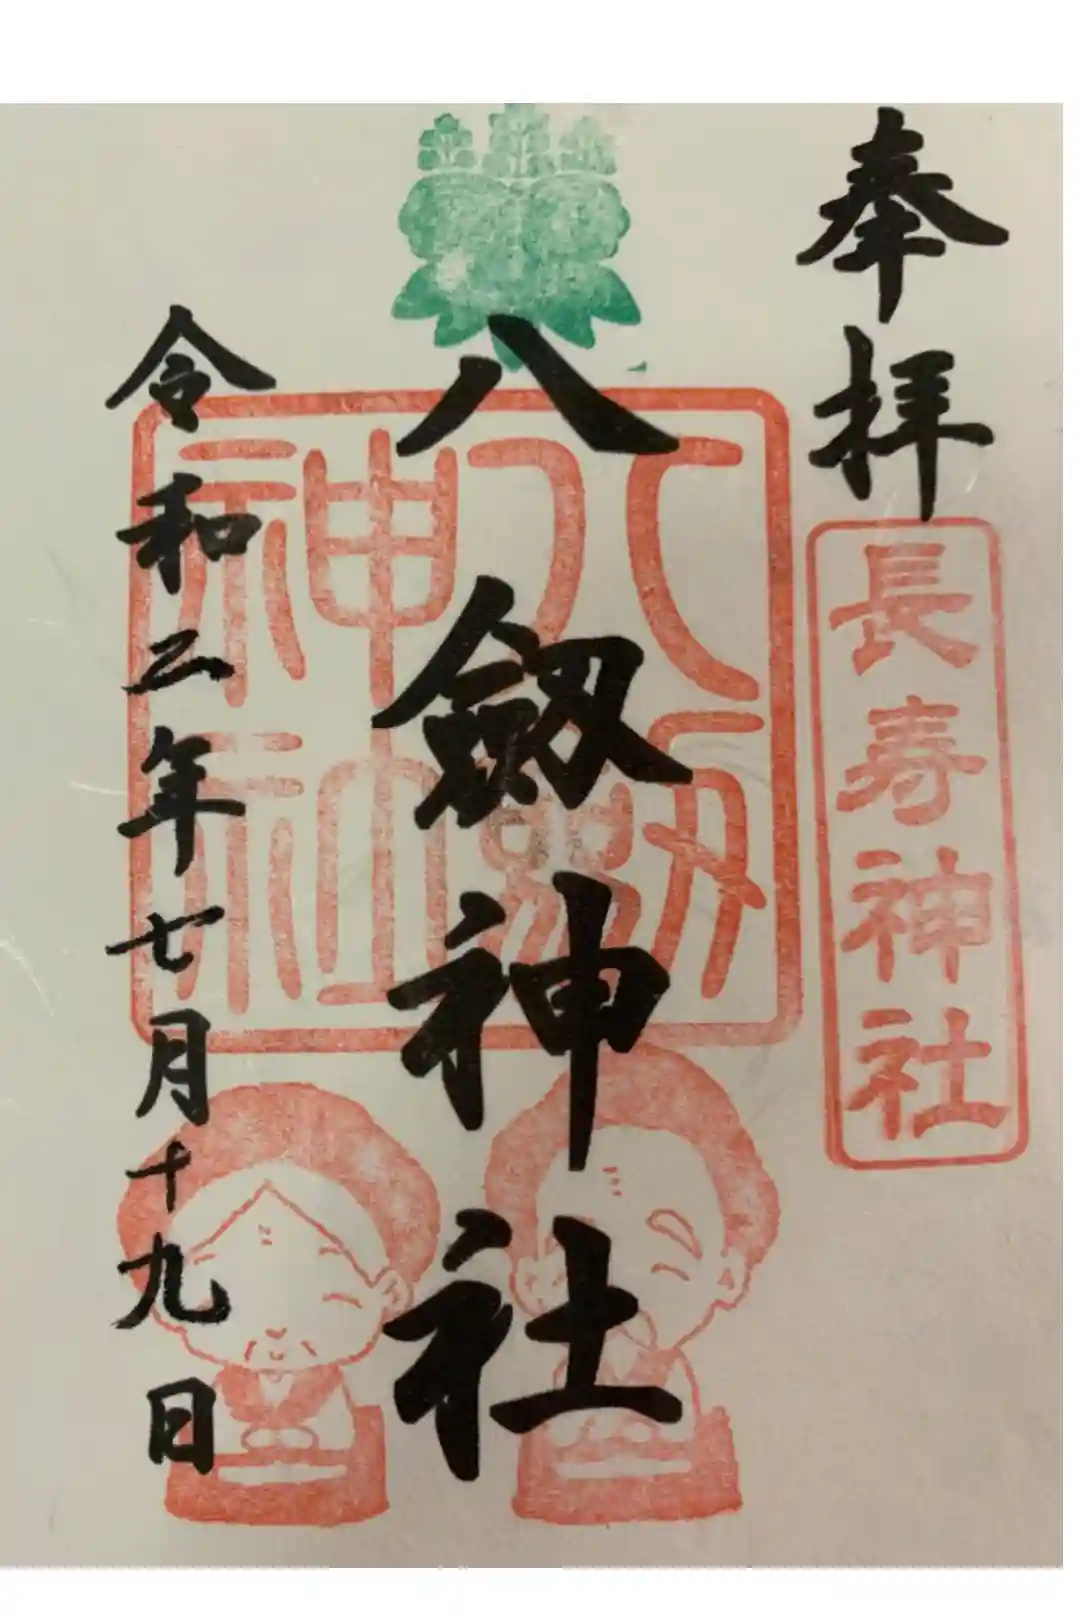 奉拝
長寿神社
八劔神社
八劔神社
令和二年七月十九日